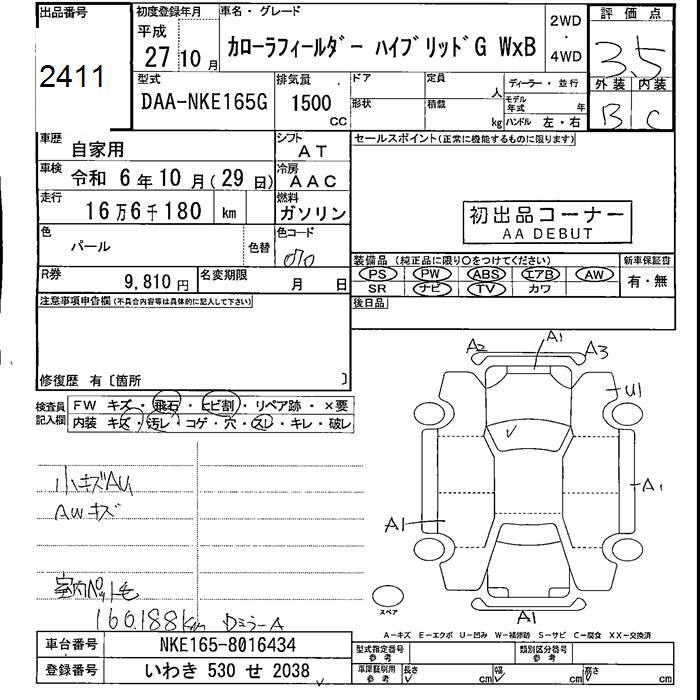 出品番号
2411
初度登録年月
平成
27 10月
車名・グレード
カローラフィールダー ハイブリッドG WxB
2WD
・
4WD
評価点
3.5
外装 内装
B C
型式
DAA-NKE165G
排気量
1500
CC
ドア
定員
人
形状
積載
kg
ディーラー・並行
モデル年式 年
ハンドル 左・右
車歴
自家用
シフト
AT
車検
令和 6年10月(29日)
冷房
AAC
走行
16万6千180 km
燃料
ガソリン
色
パール
色替
色コード
070
R券
9,810円
名変期限
月 日
セールスポイント(正常に機能するものに限ります)
初出品コーナー
AA DEBUT
装備品(純正品に限り○をつけてください)
PS PW ABS エアB AW
SR ナビ TV カワ
新車保証書
有・無
後日品
注意事項申告欄(不具合内容等は具体的に記入して下さい)
修復歴 有〔箇所 〕
検査員記入欄
FW キズ・飛石・ヒビ割・リペア跡・×要
内装 キズ・汚レ・コゲ・穴・スレ・キレ・破レ
小キズAU
AWキズ
室内ペット毛
166188km DミラーA
A2
A1
A3
U1
A1
A1
A1
スペア
A-キズ E-エクボ U-凹み W-補修跡 S-サビ C-腐食 XX-交換済
車台番号
NKE165-8016434
登録番号
いわき 530 せ 2038
型式指定番号
参考
類別区分番号
参考
車庫証明用
参考
長さ cm
幅 cm
高さ cm